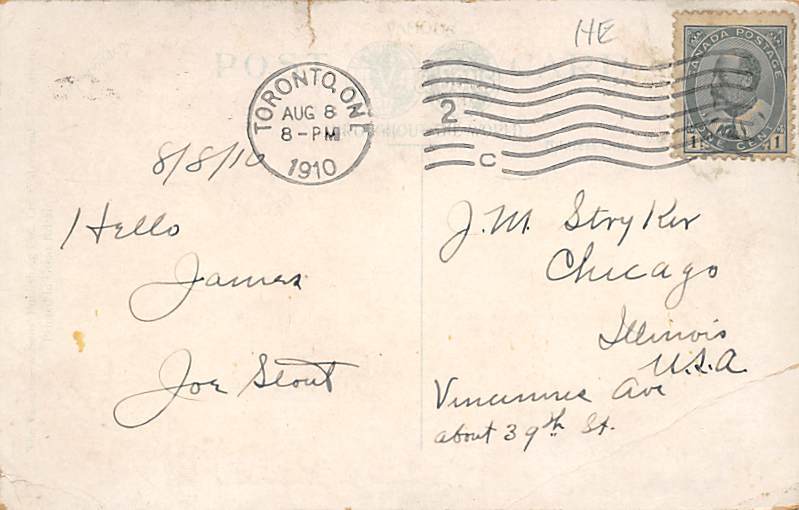 HE
POST CARD
CANADA POSTAGE
ONE CENT
1 1
TORONTO, ONT
AUG 8
8-PM
1910
2
C
8/8/10
Hello
James
Joe Stout
J. M. Stryker
Chicago
Illinois
U.S.A.
Vincennes Ave
about 39th St.